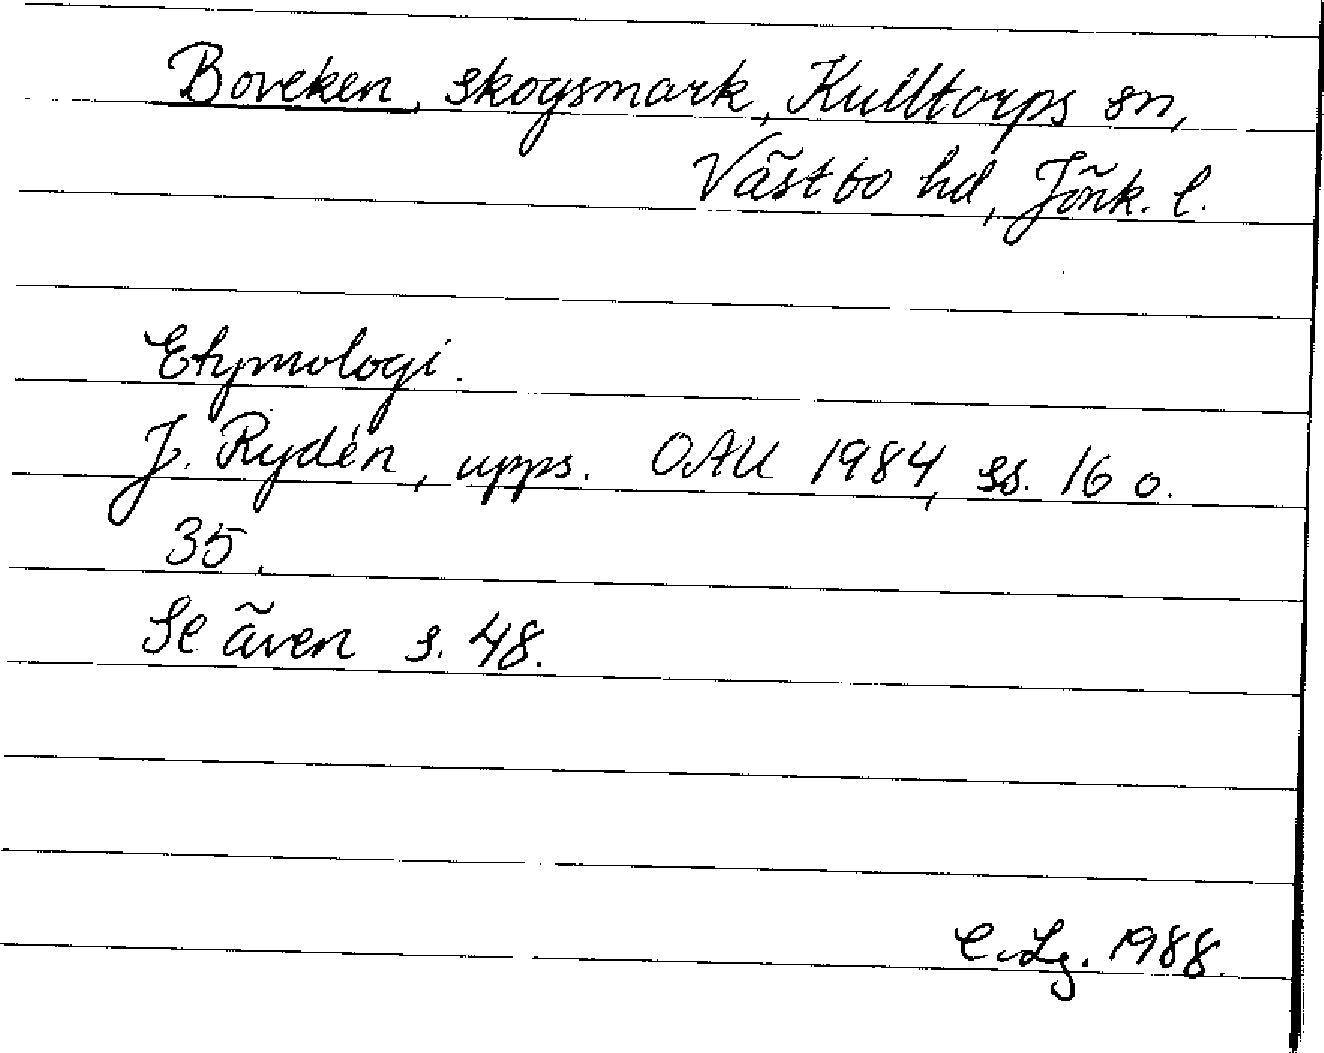 Boveken, skogsmark, Kulltorps sn,
Västbo hd, Jönk. l.
Etymologi.
J. Rydén, upps. OAU 1984, ss. 16 o.
35.
Se även s. 48.
C.Lg. 1988.